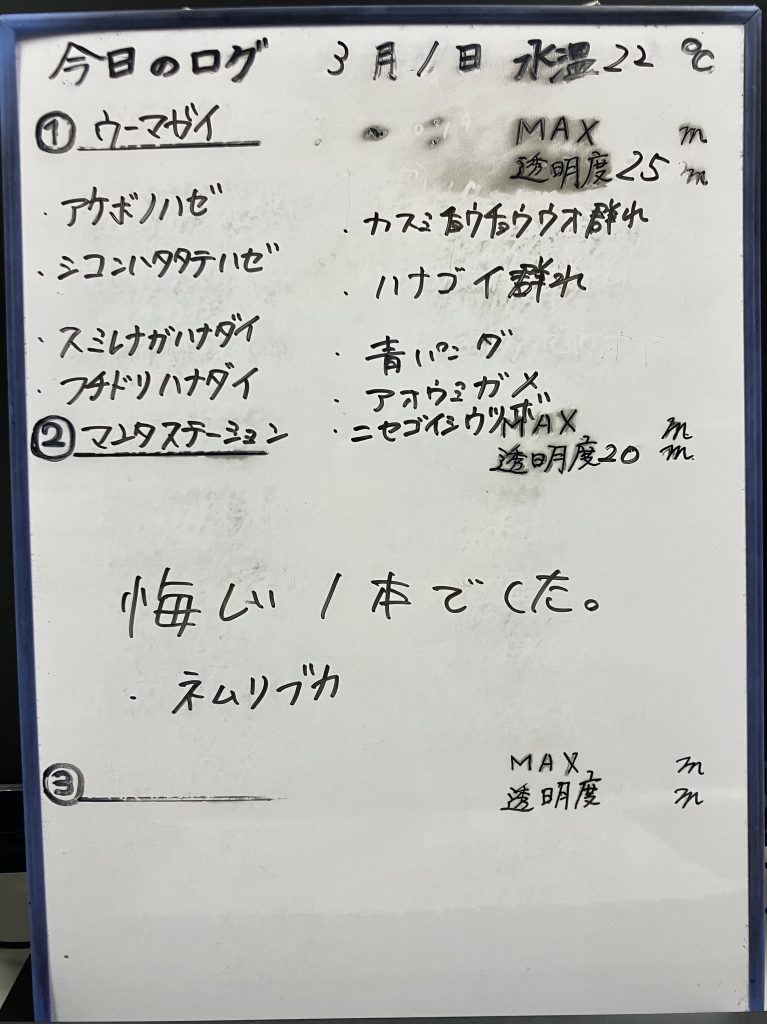 今日のログ 3月1日 水温22℃
① ウーマガイ MAX m
透明度25m
・アケボノハゼ
・シコンハタタテハゼ
・スミレナガハナダイ
・フチドリハナダイ
・カスミチョウチョウウオ群れ
・ハナゴイ群れ
・青パンダ
・アオウミガメ
・ニセゴイシウツボ
② マンタステーション MAX m
透明度20m
悔しい1本でした。
・ネムリブカ
③ MAX m
透明度 m